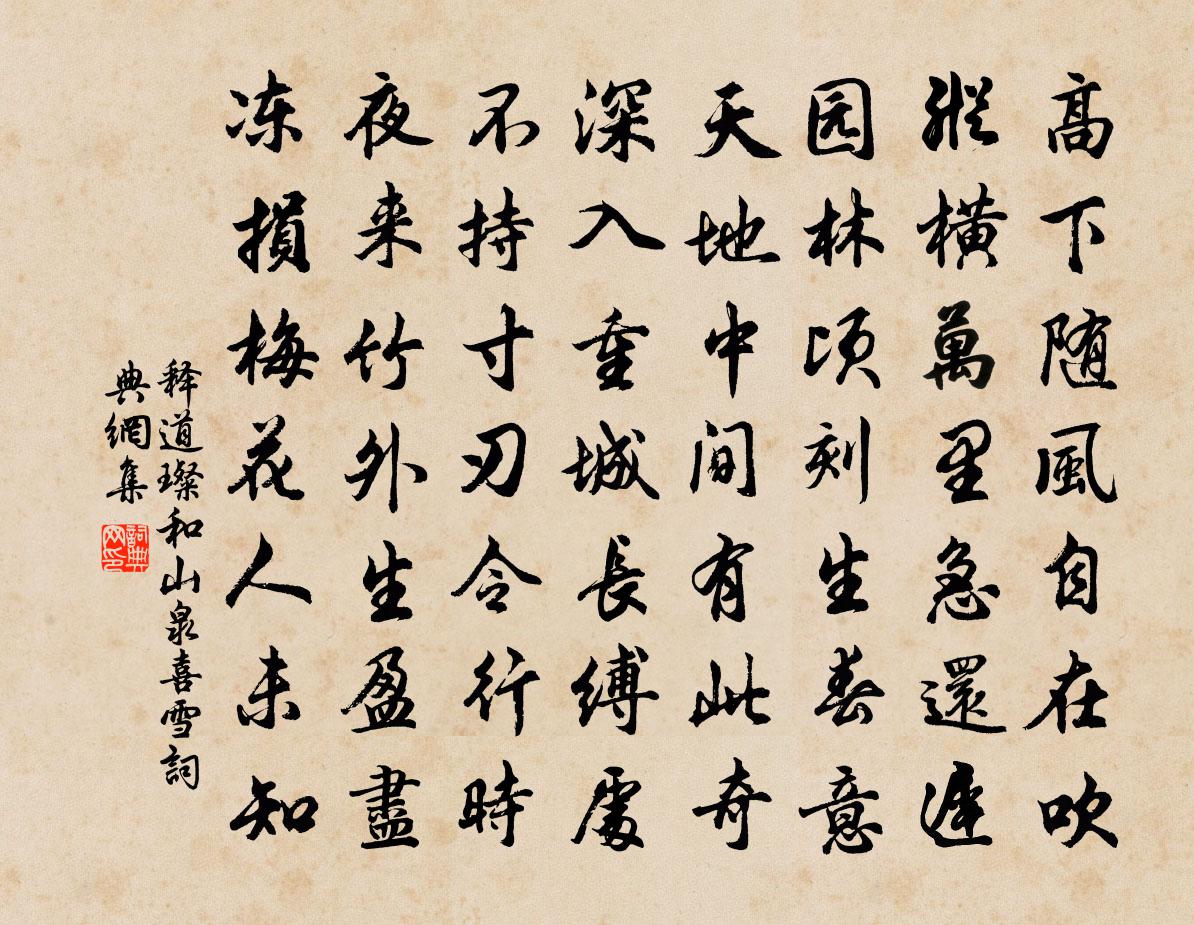 高下随風自在吹
縱橫萬里急還遲
园林頃刻生春意
天地中间有此奇
深入重城長縛處
不持寸刃令行時
夜来竹外生盈盡
冻損梅花人未知
释道璨和山泉喜雪詞
典網集
詞典
网印